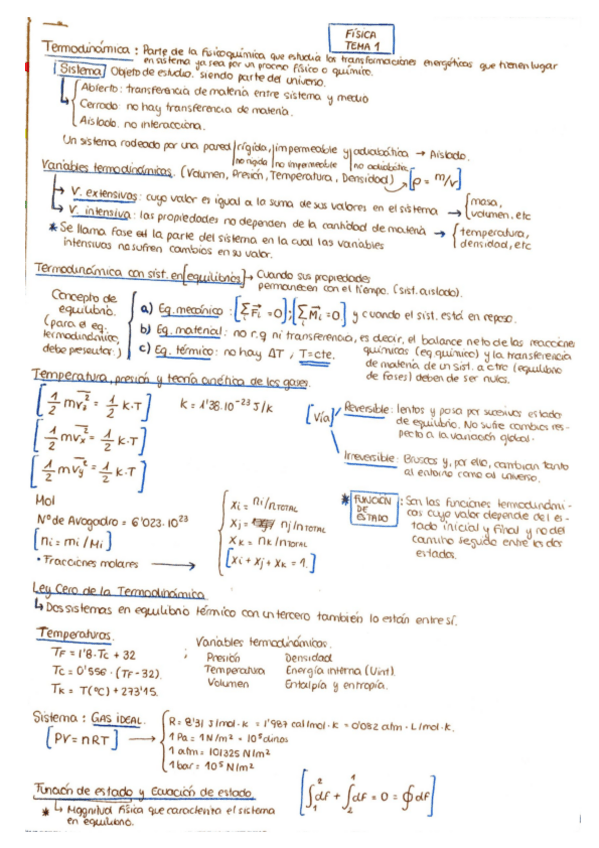 FÍSICA
TEMA 1
Termodinámica: Parte de la fisicoquímica que estudia las transformaciones energéticas que tienen lugar
en sistema ya sea por un proceso físico o químico.
Sistema Objeto de estudio, siendo parte del universo.
Abierto: transferencia de materia entre sistema y medio
Cerrado: no hay transferencia de materia.
Aislado: no interacciona.
Un sistema rodeado por una pared rígida, impermeable y adiabática → Aislado.
no rígida no impermeable no adiabática
Variables termodinámicas. (Volumen, Presión, Temperatura, Densidad) → [ρ = m/v]
V. extensivas: cuyo valor es igual a la suma de sus valores en el sistema → { masa,
volumen, etc
V. intensiva: las propiedades no dependen de la cantidad de materia → { temperatura,
densidad, etc
* Se llama fase a la parte del sistema en la cual las variables
intensivas no sufren cambios en su valor.
Termodinámica con sist. en [equilibrios] → Cuando sus propiedades
permanecen con el tiempo. (sist. aislado).
Concepto de
equilibrio.
(para el eq.
termodinámico,
debe presentar:)
a) Eq. mecánico: [Σ Fi = 0]; [Σ Mi = 0] y cuando el sist. está en reposo.
b) Eq. material: no r.q ni transferencia, es decir, el balance neto de las reacciones
químicas (eq químico) y la transferencia
de materia de un sist. a otro (equilibrio
de fases) deben de ser nulos.
c) Eq. térmico: no hay ΔT, T=cte.
Temperatura, presión y teoría cinética de los gases.
[1/2 m vx² = 1/2 K·T] K = 1'38·10⁻²³ J/K
[1/2 m vx² = 1/2 K·T]
[1/2 m vy² = 1/2 K·T]
[Vía]
Reversible: lentos y pasa por sucesivos estados
de equilibrio. No sufre cambios res-
pecto a la variación global.
Irreversible: Bruscos y, por ello, cambian tanto
al entorno como al universo.
Mol
Nº de Avogadro = 6'023·10²³
[ni = mi / Mi]
• Fracciones molares →
Xi = ni/nTOTAL
Xj = nj/nTOTAL
XK = nK/nTOTAL
[Xi + Xj + XK = 1.]
* FUNCIÓN
DE
ESTADO
: Son las funciones termodinámi-
cas cuyo valor depende del es-
tado inicial y final y no del
camino seguido entre los dos
estados.
Ley Cero de la Termodinámica
↳ Dos sistemas en equilibrio térmico con un tercero también lo están entre sí.
Temperaturas.
TF = 1'8·Tc + 32
Tc = 0'556·(TF - 32).
TK = T(ºC) + 273'15.
;
Variables termodinámicas.
Presión Densidad
Temperatura Energía interna (Uint).
Volumen Entalpía y entropía.
Sistema: GAS IDEAL.
[PV = nRT] →
R = 8'31 J/mol·K = 1'987 cal/mol·K = 0'082 atm·L/mol·K.
1 Pa = 1 N/m² = 10⁵ dinas
1 atm = 101325 N/m²
1 bar = 10⁵ N/m²
Función de estado y Ecuación de estado.
* ↳ Magnitud física que caracteriza el sistema
en equilibrio.
[∫₁² df + ∫₂¹ df = 0 = ∮df]